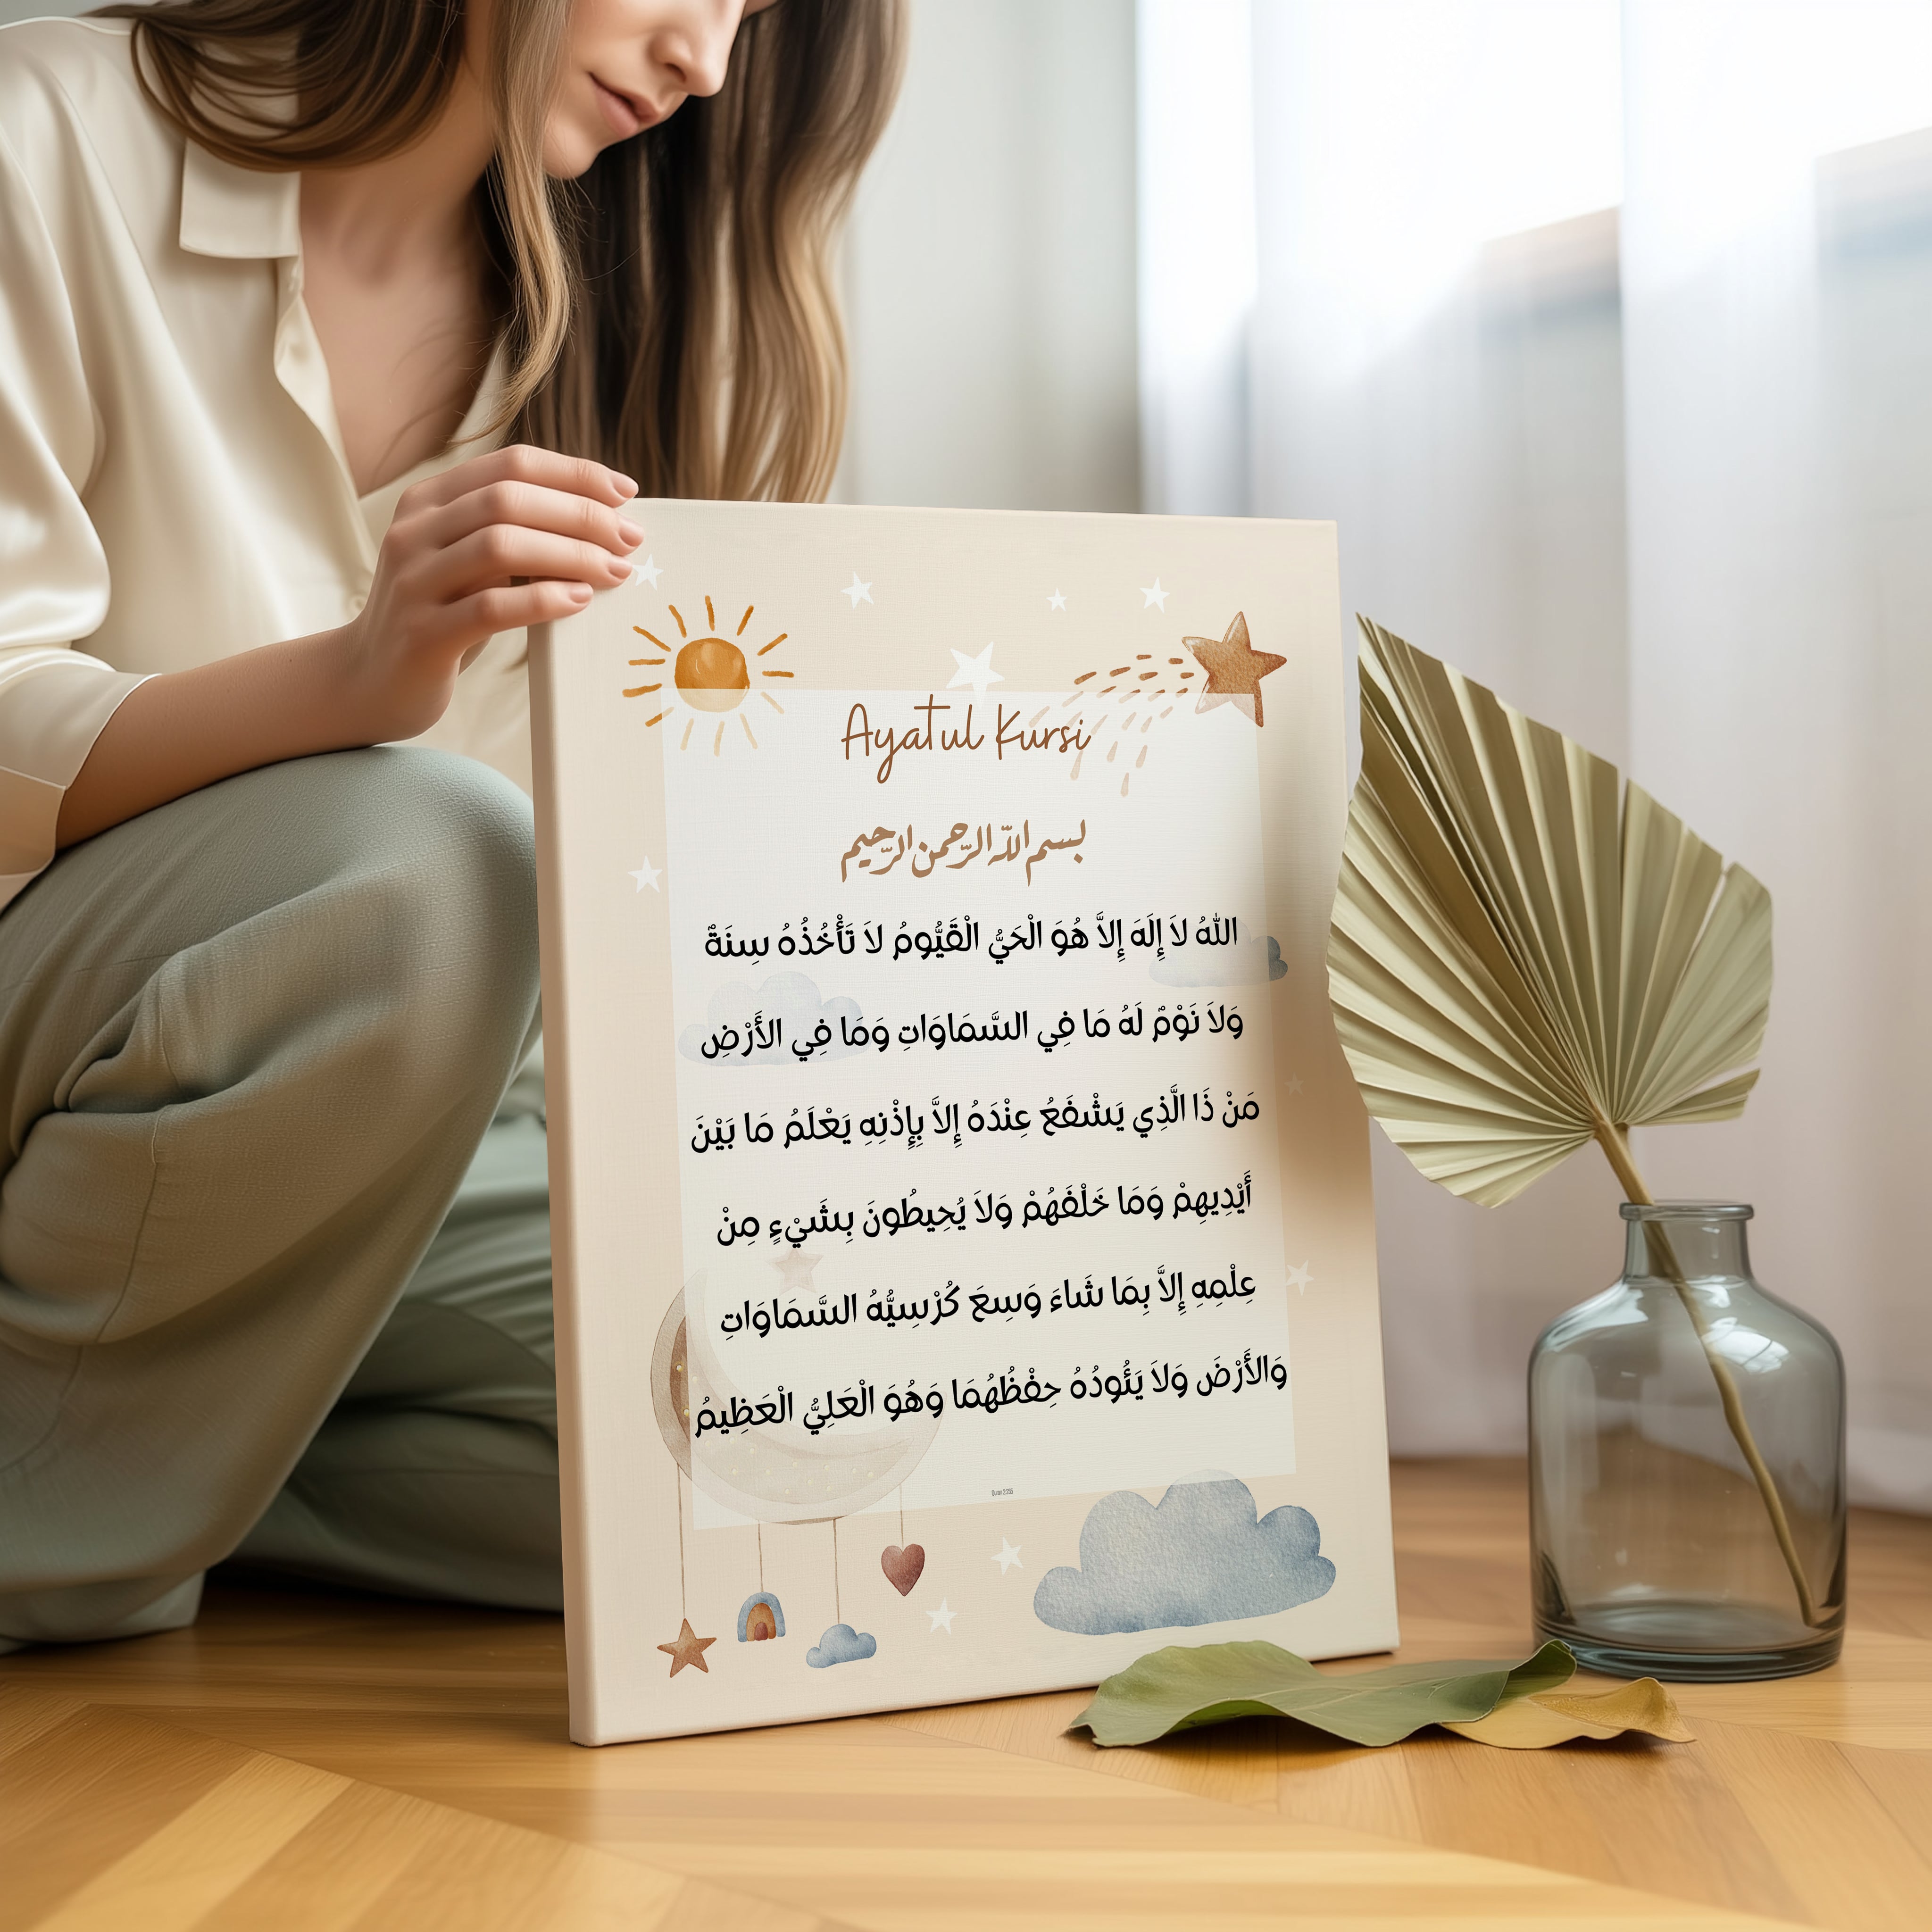 Ayatul Kursi
بسم اللّه الرّحمن الرّحيم
اللّٰهُ لاَ إِلَهَ إِلاَّ هُوَ الْحَيُّ الْقَيُّومُ لاَ تَأْخُذُهُ سِنَةٌ
وَلاَ نَوْمٌ لَهُ مَا فِي السَّمَاوَاتِ وَمَا فِي الأَرْضِ
مَنْ ذَا الَّذِي يَشْفَعُ عِنْدَهُ إِلاَّ بِإِذْنِهِ يَعْلَمُ مَا بَيْنَ
أَيْدِيهِمْ وَمَا خَلْفَهُمْ وَلاَ يُحِيطُونَ بِشَيْءٍ مِنْ
عِلْمِهِ إِلاَّ بِمَا شَاءَ وَسِعَ كُرْسِيُّهُ السَّمَاوَاتِ
وَالأَرْضَ وَلاَ يَئُودُهُ حِفْظُهُمَا وَهُوَ الْعَلِيُّ الْعَظِيمُ
Quran 2:255